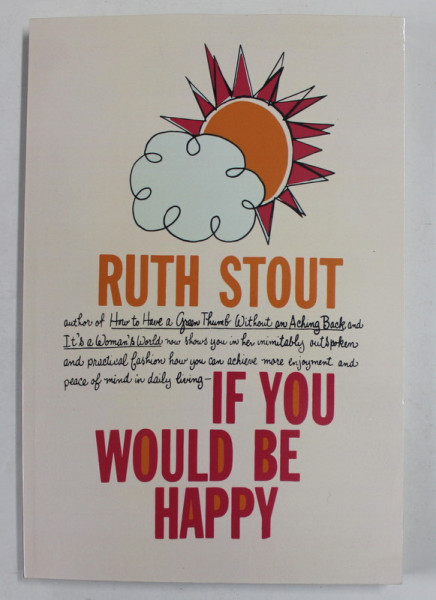 RUTH STOUT
author of How to Have a Green Thumb Without an Aching Back and
It's a Woman's World now shows you in her inimitably outspoken
and practical fashion how you can achieve more enjoyment and
peace of mind in daily living—
IF YOU
WOULD BE
HAPPY